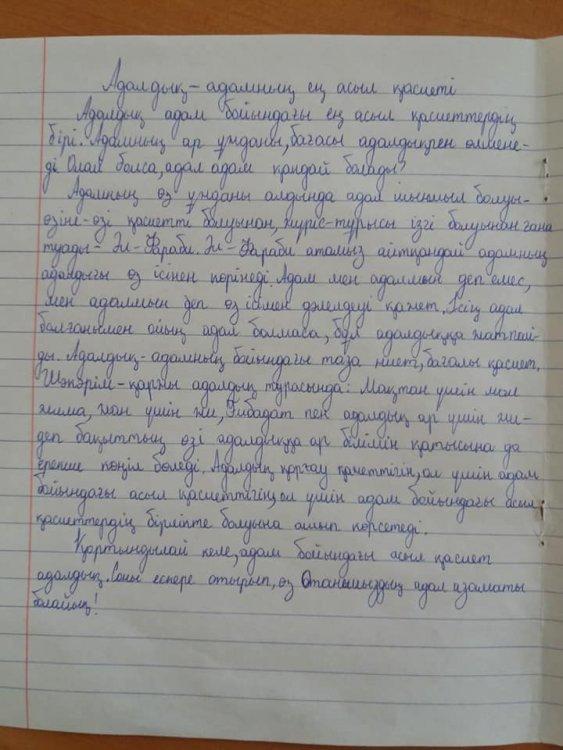 Адалдық - адамның ең асыл қасиеті
Адалдық адам бойындағы ең асыл қасиеттердің
бірі. Адамның ар ұжданы, бағасы адалдықпен өлшене-
ді. Олай болса, адал адам қандай болады?
Адамның өз ұжданы алдында адал шыншыл болуы-
өзіне-өзі қасиетті болуынан, жүріс-тұрысы ізгі болуынан ғана
туады - Әл-Фараби. Әл-Фараби атамыз айтқандай адамның
адалдығы өз ісінен көрінеді. Адам мен адалмын деп емес,
мен адалмын деп өз ісімен дәлелдеуі қажет. Ісің адал
болғанымен ойың адал болмаса, бұл адалдыққа жатпай-
ды. Адалдық - адамның бойындағы таза ниет, бағалы қасиет.
Шәкәрім - қаржы адалдық турасында: Мақтан үшін мал
жима, жан үшін жи, Ғибадат пен адалдық ар үшін жи-
деп бақыттың өзі адалдыққа ар білімін қатысына да
ерекше көңіл бөледі. Адалдық қорғау қажеттігін, ол үшін адам
бойындағы асыл қасиеттігің, ол үшін адам бойындағы асыл
қасиеттердің бірлікте болуына алып көрсетеді.
Қортындылай келе, адам бойындағы асыл қасиет
адалдық. Соны ескере отырып, өз Отанымыздың адал азаматы
болайық!